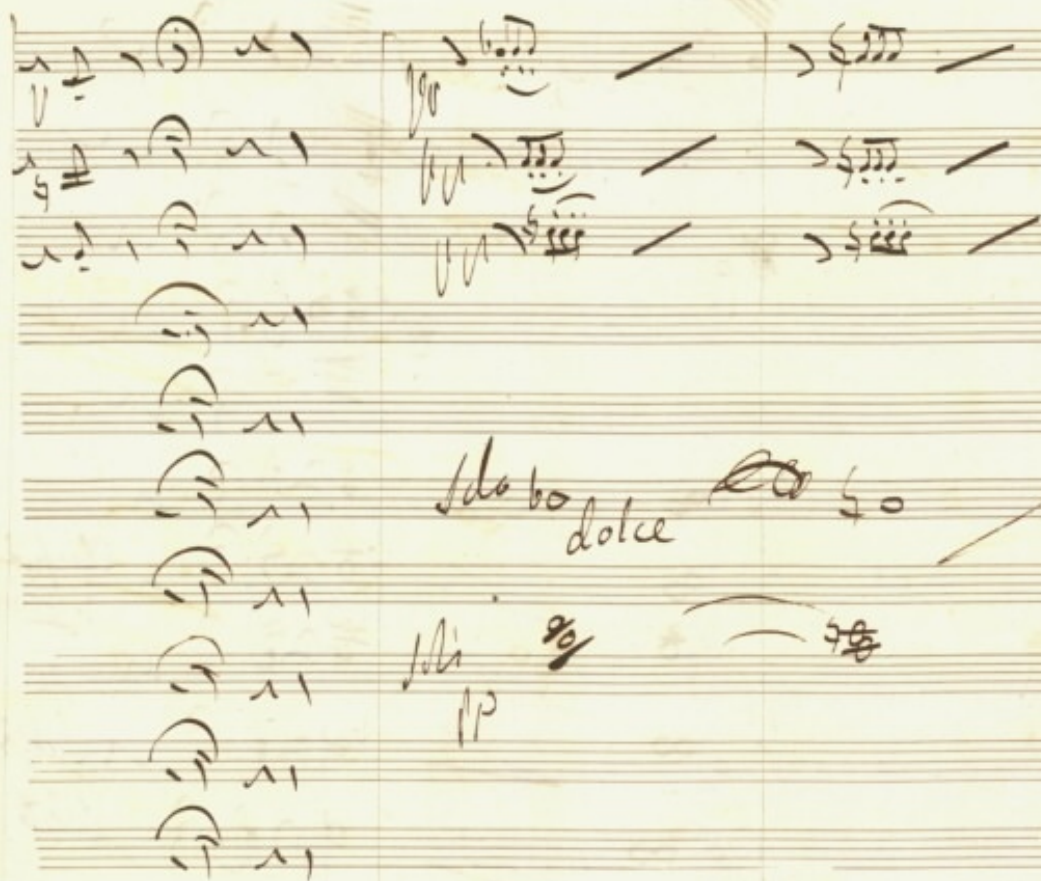 pp
pp
pp
Solo
dolce
Soli
pp